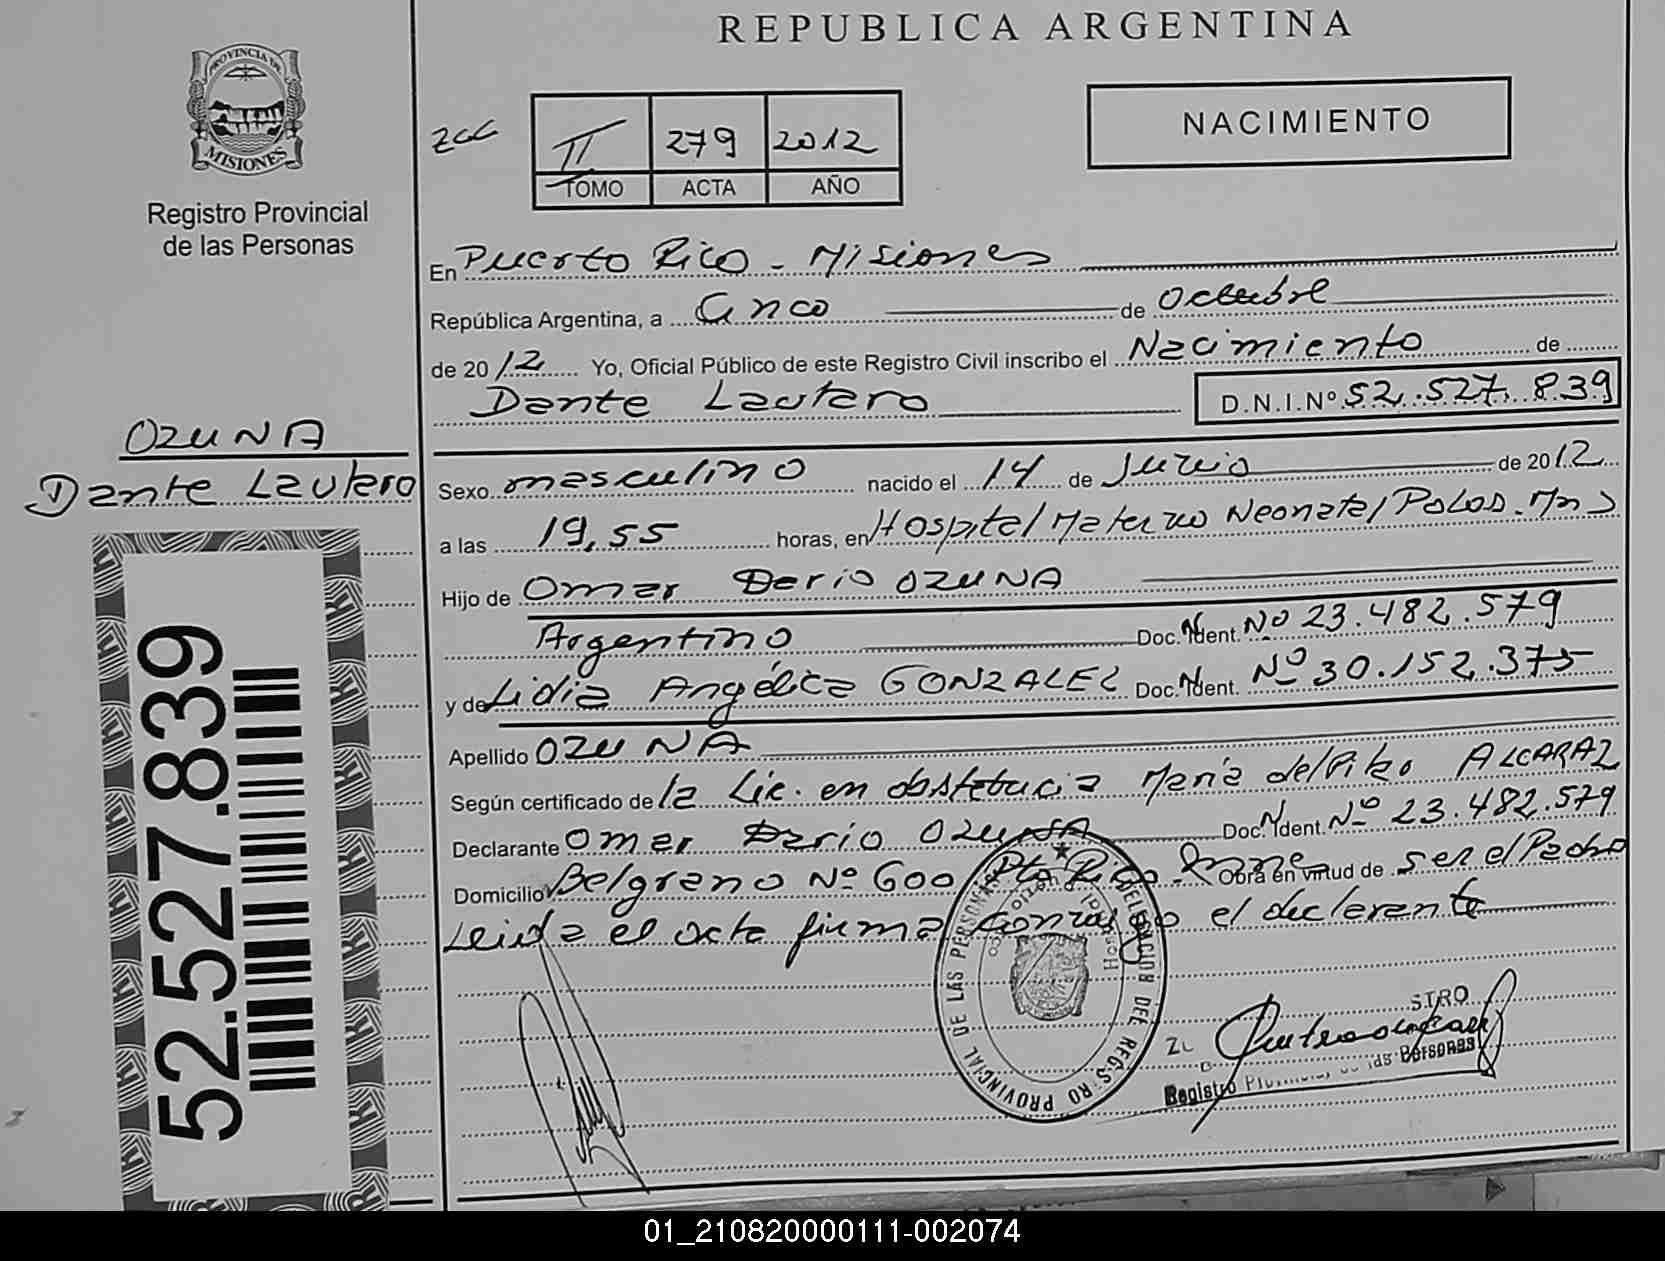 REPUBLICA ARGENTINA
PROVINCIA DE
MISIONES
Registro Provincial
de las Personas
NACIMIENTO
II 279 2012
TOMO ACTA AÑO
En Puerto Rico - Misiones
República Argentina, a Cinco de Octubre
de 2012 Yo, Oficial Público de este Registro Civil inscribo el Nacimiento de
Dante Lautaro D.N.I.Nº 52.527.839
OZUNA
Dante Lautaro
Sexo masculino nacido el 14 de Junio de 2012
a las 19,55 horas, en Hospital Materno Neonatal Pdas. Mns
Hijo de Omar Dario OZUNA
Argentino Doc. Ident. Nº 23.482.579
y de Lidia Angélica GONZALEZ Doc. Ident. Nº 30.152.375
Apellido OZUNA
Según certificado de la Lic. en obstetricia María del Pilar ALCARAZ
Declarante Omar Dario OZUNA Doc. Ident. Nº 23.482.579
Domicilio Belgrano Nº 600 Pto Rico Obra en virtud de ser el Padre
Leida el acta firma conmigo el declarante
52.527.839
DELEGACION DEL REGISTRO PROVINCIAL DE LAS PERSONAS
Registro Provincial de las Personas
01_210820000111-002074